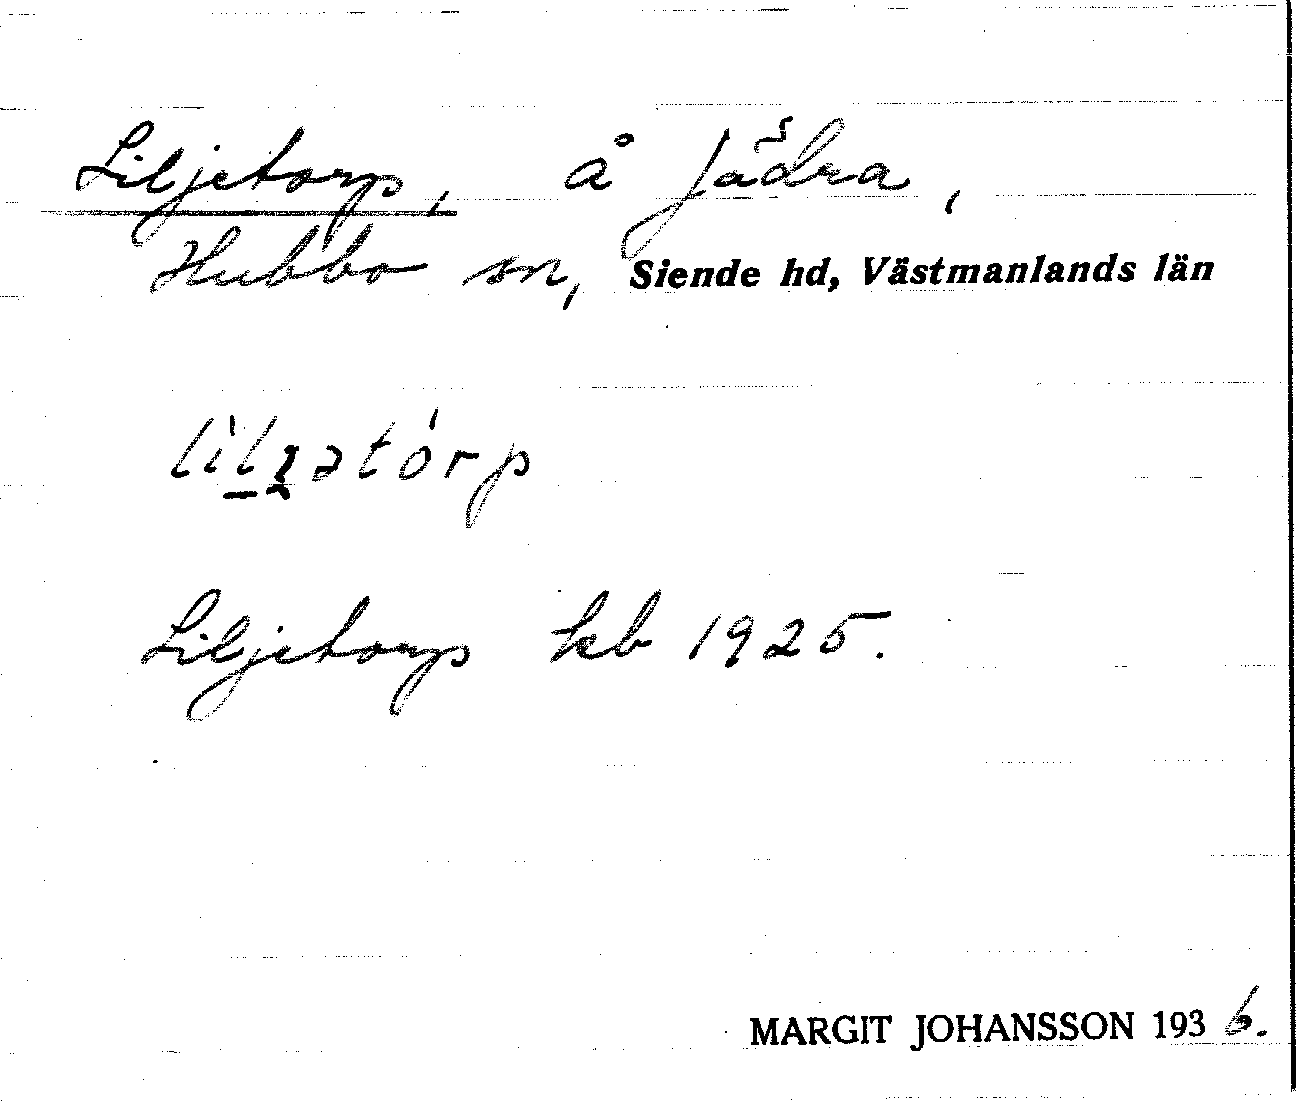 Liljetorp, å Jädra,
Hubbo sn, Siende hd, Västmanlands län
lìlʒatórp
Liljetorp kb 1925.
MARGIT JOHANSSON 1936.